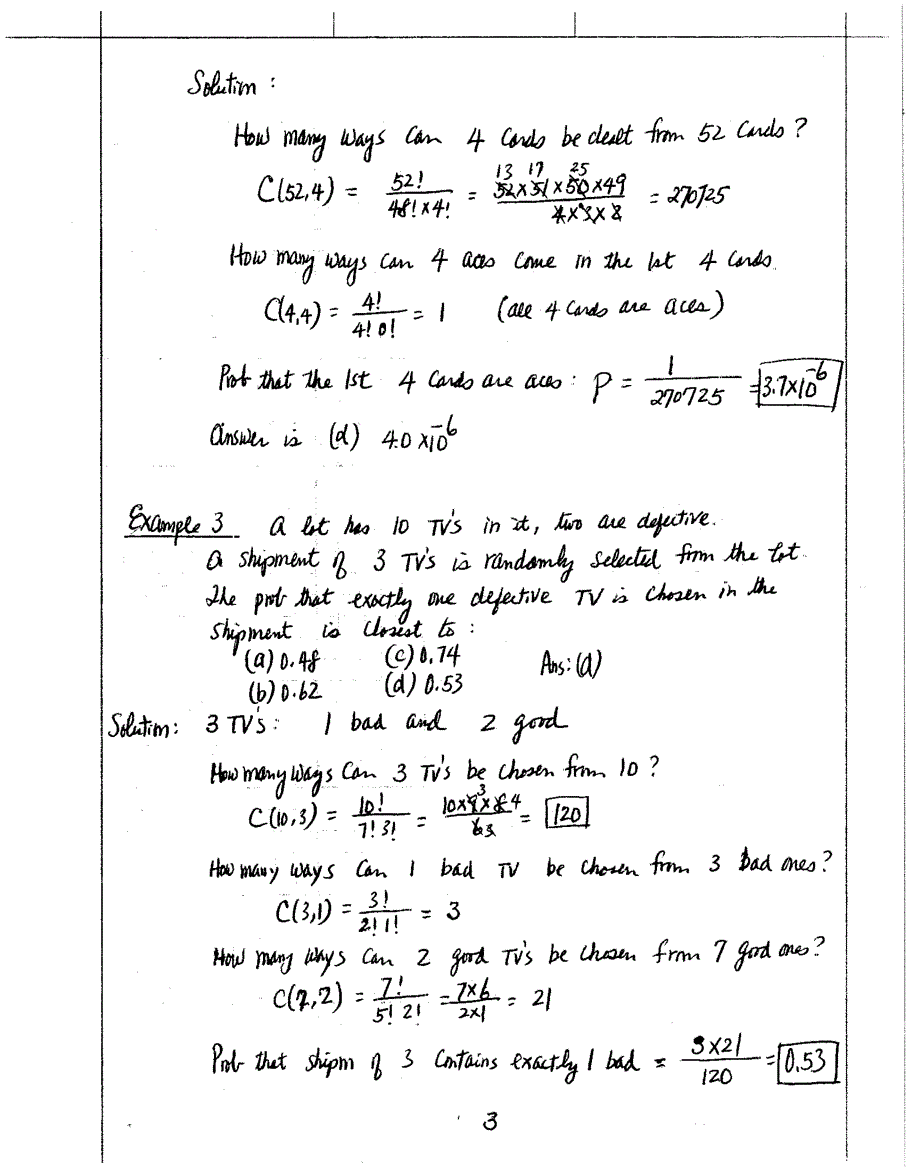 Solution :
How many ways can 4 cards be dealt from 52 cards ?
C(52,4) = 52! / 48! × 4! = 52 × 51 × 50 × 49 / 4 × 3 × 2 = 270725
13 17 25
How many ways can 4 aces come in the 1st 4 cards
C(4,4) = 4! / 4! 0! = 1 (all 4 cards are aces)
Prob that the 1st 4 cards are aces : P = 1 / 270725 = 3.7×10^-6
Answer is (d) 4.0 ×10^-6
Example 3 A lot has 10 TV's in it, two are defective.
A shipment of 3 TV's is randomly selected from the lot.
The prob that exactly one defective TV is chosen in the
shipment is closest to :
(a) 0.48 (c) 0.74 Ans: (d)
(b) 0.62 (d) 0.53
Solution: 3 TV's : 1 bad and 2 good
How many ways can 3 TV's be chosen from 10 ?
C(10,3) = 10! / 7! 3! = 10 × 9 3 × 8 4 / 6 3 = 120
How many ways can 1 bad TV be chosen from 3 bad ones?
C(3,1) = 3! / 2! 1! = 3
How many ways can 2 good TV's be chosen from 7 good ones?
C(7,2) = 7! / 5! 2! = 7×6 / 2×1 = 21
Prob that shipm of 3 contains exactly 1 bad = 3×21 / 120 = 0.53
3